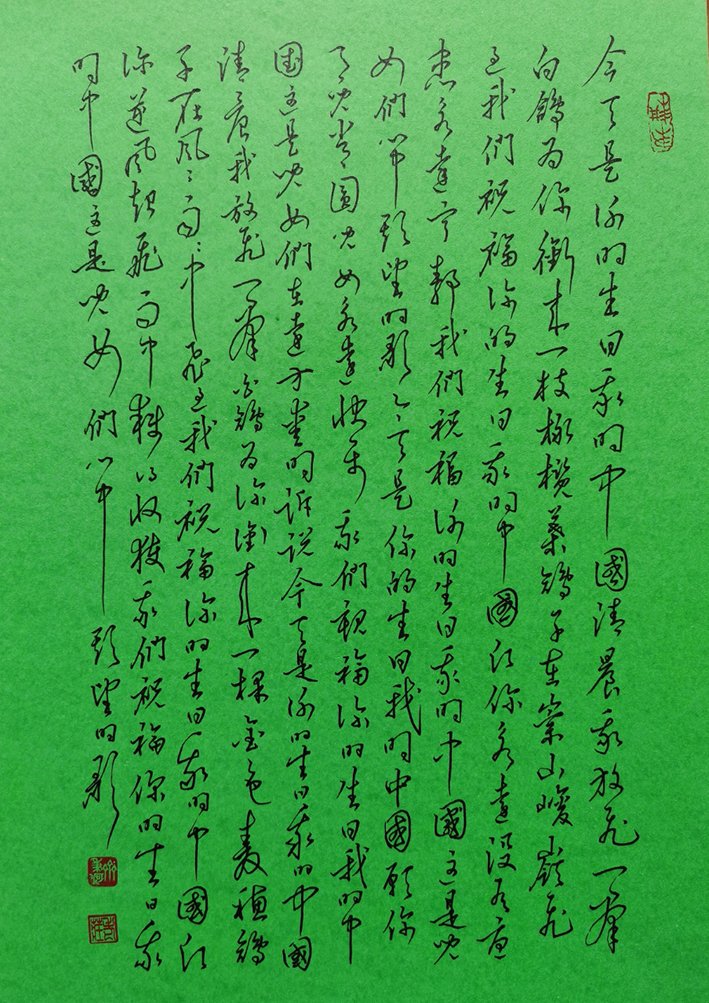 今天是你的生日我的中國清晨我放飛一群
白鴿為你銜來一枝橄欖葉鴿子在崇山峻嶺飛
過我們祝福你的生日我的中國願你永遠沒有憂
患永遠寧靜我們祝福你的生日我的中國這是兒
女們心中期望的歌今天是你的生日我的中國願你
月兒常圓兒女永遠快樂我們祝福你的生日我的中
國這是兒女們在遠方愛的訴說今天是你的生日我的中國
清晨我放飛一群白鴿為你銜來一棵金色麥穗鴿
子在風々雨々中飛過我們祝福你的生日我的中國願
你逆風起飛雨中收獲我們祝福你的生日我
的中國這是兒女們心中期望的歌